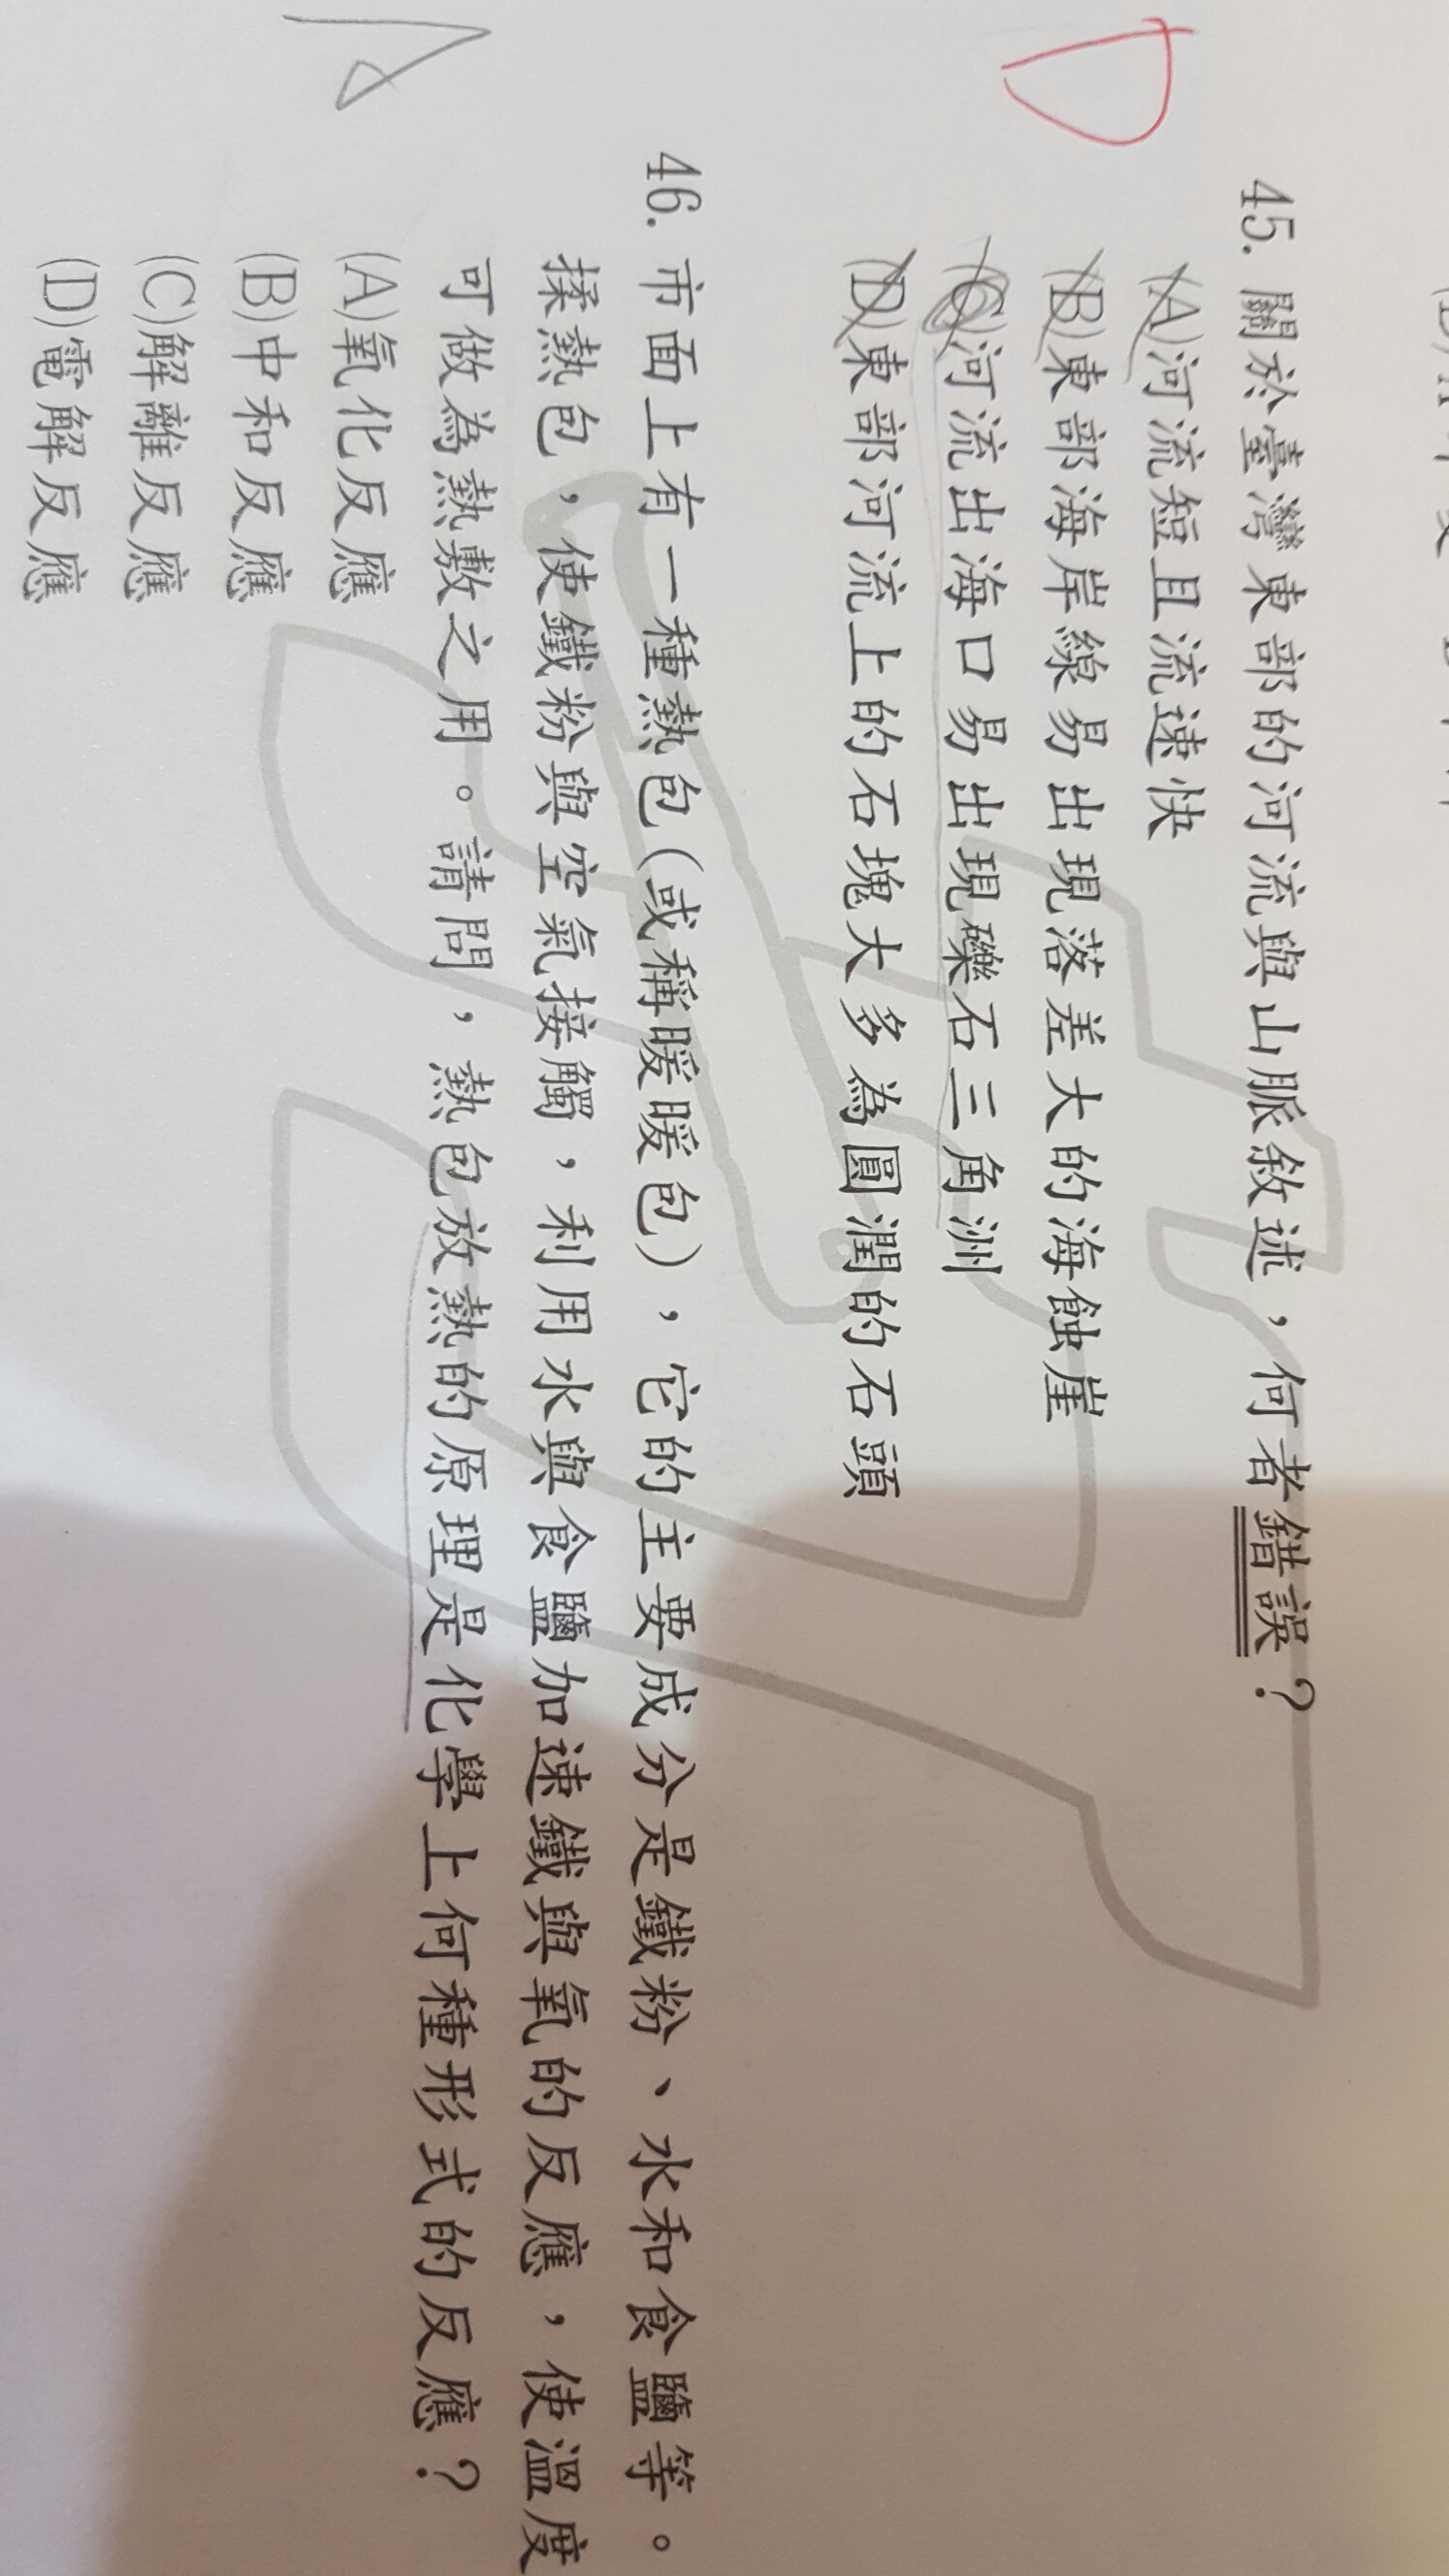 D
45. 關於臺灣東部的河流與山脈敘述，何者錯誤？
(A)河流短且流速快
(B)東部海岸線易出現落差大的海蝕崖
(C)河流出海口易出現礫石三角洲
(D)東部河流上的石塊大多為圓潤的石頭
A
46. 市面上有一種熱包(或稱暖暖包)，它的主要成分是鐵粉、水和食鹽等。
揉熱包，使鐵粉與空氣接觸，利用水與食鹽加速鐵與氧的反應，使溫度
可做為熱敷之用。請問，熱包放熱的原理是化學上何種形式的反應？
(A)氧化反應
(B)中和反應
(C)解離反應
(D)電解反應